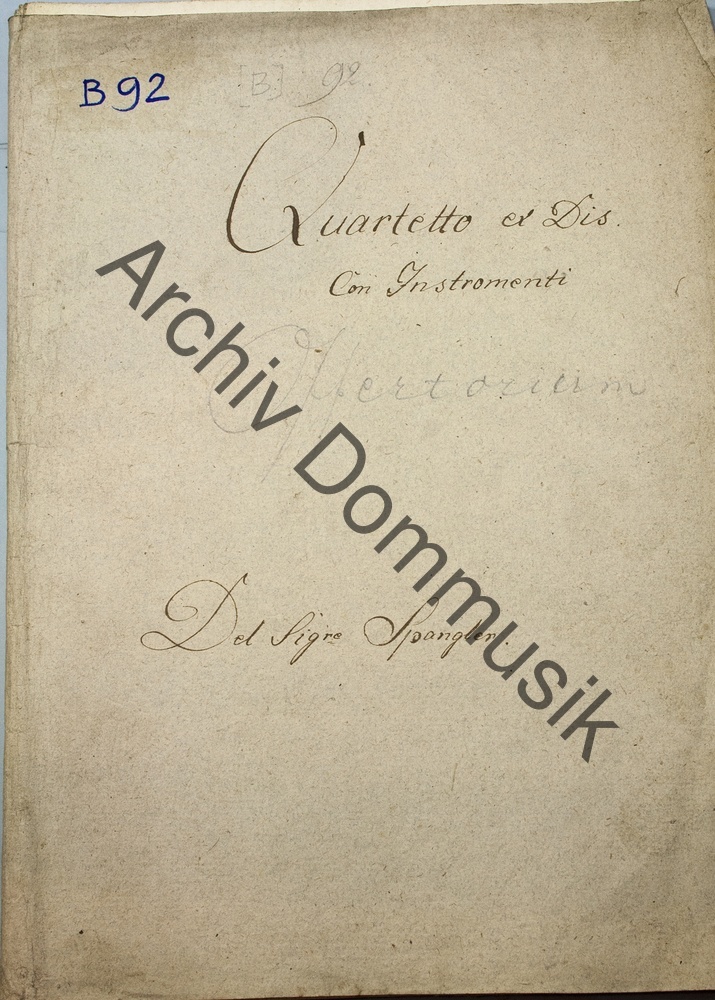 B 92
[B] 92
Quartetto ex Dis.
Con Instromenti
Offertorium
Del Sigre Spangler.
Archiv Dommusik